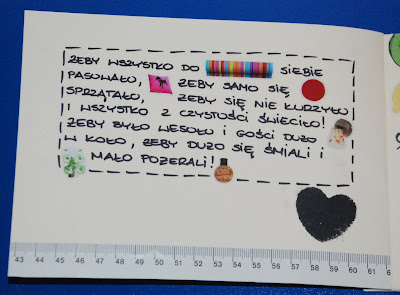 ŻEBY WSZYSTKO DO SIEBIE
PASOWAŁO, ŻEBY SAMO SIĘ
SPRZĄTAŁO, ŻEBY SIĘ NIE KURZYŁO
I WSZYSTKO Z CZYSTOŚCI ŚWIECIŁO!
ŻEBY BYŁO WESOŁO I GOŚCI DUŻO
W KOŁO, ŻEBY DUŻO SIĘ ŚMIALI I
MAŁO POŻERALI!
43 44 45 46 47 48 49 50 51 52 53 54 55 56 57 58 59 60 61